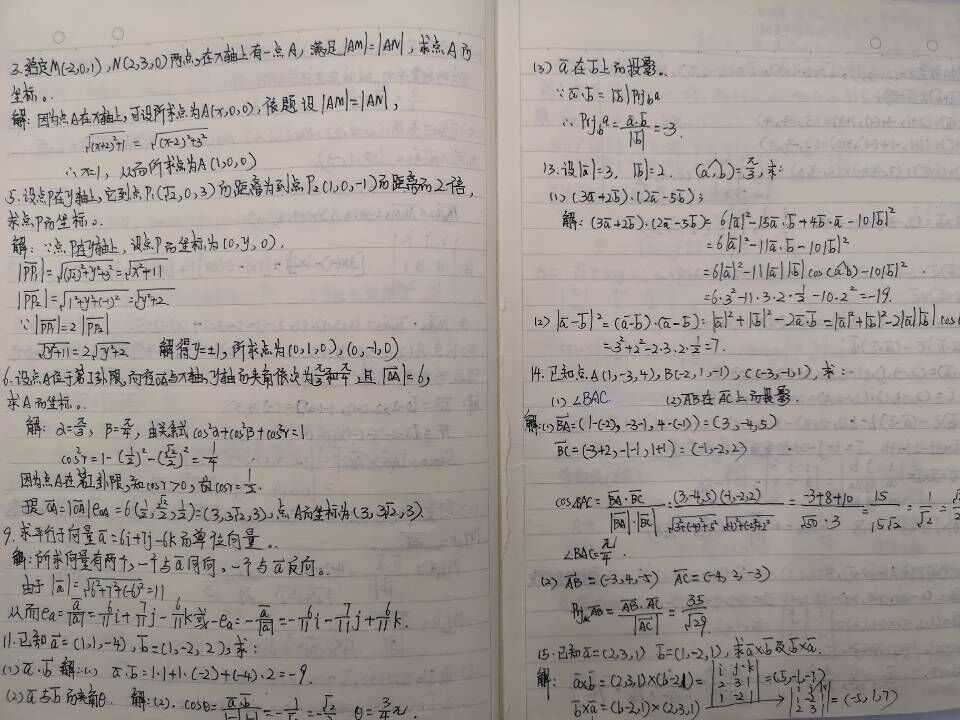 3.给定M(-2,0,1),N(2,3,0)两点,在x轴上有一点A,满足|AM|=|AN|,求点A的
坐标。
解:因为点A在x轴上,可设所求点为A(x,0,0),依题设|AM|=|AN|,
√(x+2)²+1 = √(x-2)²+3²
∴x=1,从而所求点为A(1,0,0)
5.设点P在y轴上,它到点P₁(√2,0,3)的距离为到点P₂(1,0,-1)的距离的2倍,
求点P的坐标。
解:∵点P在y轴上,设点P的坐标为(0,y,0).
|PP₁|=√(√2)²+y²+3²=√x²+11
|PP₂|=√1²+y²+(-1)²=√y²+2
∵|PP₁|=2|PP₂|
√y²+11=2√y²+2 解得y=±1,所求点为(0,1,0),(0,-1,0)
6.设点A位于第I卦限,向径OA与x轴,y轴的夹角依次为π/3和π/4,且|OA|=6,
求A的坐标。
解:α=π/3,β=π/4,由关系式cos²α+cos²β+cos²r=1
cos²r=1-(1/2)²-(√2/2)²=1/4
因为点A在第I卦限,知cosr>0,故cosr=1/2.
于是OA=|OA|e_OA=6(1/2,√2/2,1/2)=(3,3√2,3),点A的坐标为(3,3√2,3)
9.求平行于向量a=6i+7j-6k的单位向量。
解:所求向量有两个,一个与a同向,一个与a反向。
由于|a|=√6²+7²+(-6)²=11
从而e_a=a/|a|=6/11i+7/11j-6/11k或-e_a=-a/|a|=-6/11i-7/11j+6/11k.
11.已知a=(1,1,-4),b=(1,-2,2),求:
(1)a·b 解:(1) a·b=1·1+1·(-2)+(-4)·2=-9.
(2)a与b的夹角θ. 解:(2). cosθ=a·b/|a||b|=-1/√2=-√2/2 θ=3/4π.
(3) a在b上的投影.
∵a·b=|b|Prj_b a
∴Prj_b a=a·b/|b|=-3.
13.设|a|=3,|b|=2,(a^b)=π/3,求:
(1)(3a+2b)·(2a-5b);
解:(3a+2b)·(2a-5b)=6|a|²-15a·b+4b·a-10|b|²
=6|a|²-11a·b-10|b|²
=6|a|²-11|a||b|cos(a^b)-10|b|²
=6·3²-11·3·2·1/2-10·2²=-19.
(2)|a-b|²=(a-b)·(a-b)=|a|²+|b|²-2a·b=|a|²+|b|²-2|a||b|·cos
=3²+2²-2·3·2·1/2=7.
14.已知点A(1,-3,4),B(-2,1,-1),C(-3,-1,1),求:
(1)∠BAC. (2)AB在AC上的投影.
解:(1)BA=(1-(-2),-3-1,4-(-1))=(3,-4,5)
BC=(-3+2,-1-1,1+1)=(-1,-2,2)
cos∠BAC=BA·BC/|BA|·|BC|=(3,-4,5)(-1,-2,2)/√3²+(-4)²+5²√(-1)²+(-2)²+2²=-3+8+10/√50·3=15/15√2=1/√2=
∠BAC=π/4.
(2) AB=(-3,4,-5) AC=(-4,2,-3)
Prj_AC AB=AB·AC/|AC|=35/√29.
15.已知a=(2,3,1) b=(1,-2,1),求a×b及b×a.
解: a×b=(2,3,1)×(1,-2,1)=|i j k 2 3 1 1 -2 1|=(5,-1,-7)
b×a=(1,-2,1)×(2,3,1) → |i j k 1 -2 1 2 3 1|=(-5,1,7)